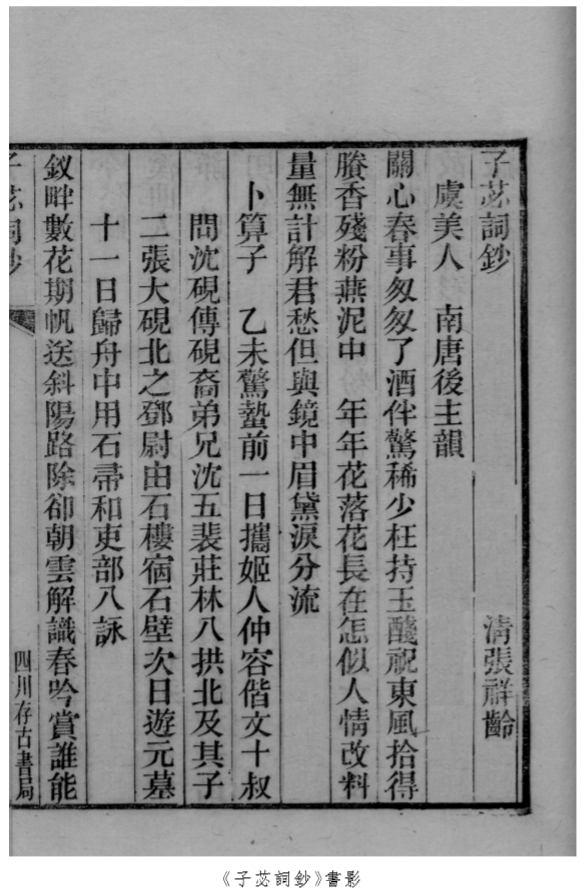 子苾詞鈔 清張祥齡
虞美人 南唐後主韻
關心春事匆匆了酒伴驚稀少枉持玉醆祝東風拾得
賸香殘粉燕泥中 年年花落花長在怎似人情改料
量無計解君愁但與鏡中眉黛淚分流
卜算子 乙未驚蟄前一日攜姬人仲容偕文十叔
問沈硯傳硯裔弟兄沈五裴莊林八拱北及其子
二張大硯北之鄧尉由石樓宿石壁次日遊元墓
十一日歸舟中用石帚和吏部八詠
釵畔數花期帆送斜陽路除卻朝雲解識春吟賞誰能
子苾詞鈔
四川存古書局
《子苾詞鈔》書影